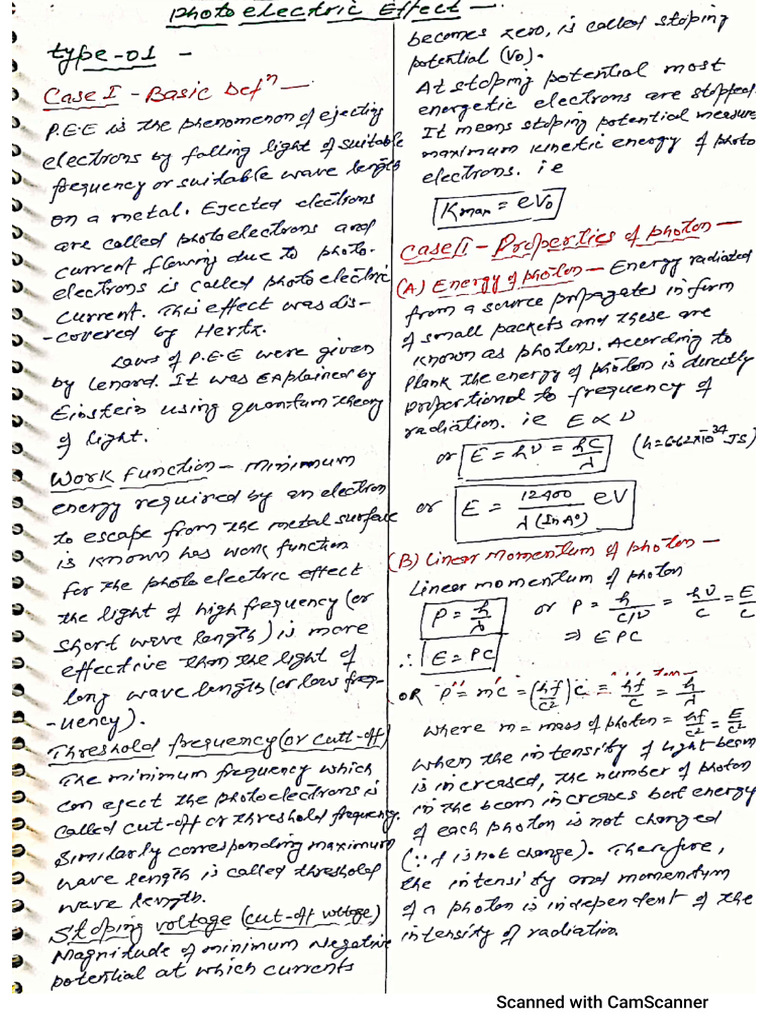 Photo electric Effect -
type-01 -
Case I - Basic Defⁿ -
P.E.E is the phenomenon of ejecting
electrons by falling light of suitable
frequency or suitable wave length
on a metal. Ejected electrons
are called photoelectrons and
current flowing due to photo-
electrons is called photo electric
current. This effect was dis-
-covered by Hertz.
Laws of P.E.E were given
by Lenard. It was explained by
Einstein using quantum theory
of light.
Work Function - Minimum
energy required by an electron
to escape from the metal surface
is known has work function
for the photo electric effect
the light of high frequency (or
short wave length) is more
effective than the light of
long wave length (or low freq-
-uency).
Threshold frequency (or cutt-off)
The minimum frequency which
can eject the photoelectrons is
called cut-off or threshold frequency.
Similarly corresponding maximum
wave length is called threshold
wave length.
Stoping voltage (cut-off voltage)
Magnitude of minimum Negative
potential at which currents
becomes zero, is called stoping
potential (V₀).
At stoping potential most
energetic electrons are stopped.
It means stoping potential measure
maximum kinetic energy of photo
electrons. i.e
Kmax = eV₀
Case II - Properties of photon -
(A) Energy of photon - Energy radiated
from a source propagates in form
of small packets and these are
known as photons. According to
Plank the energy of photon is directly
proportional to frequency of
radiation. ie E ∝ ν
or E = hν = hc/λ (h=6.62×10⁻³⁴ JS)
or E = 12400/λ(In A°) eV
(B) Linear Momentum of photon -
Linear momentum of photon
P = h/λ or P = h/C/ν = hν/C = E/C
⇒ E PC
∴ E = PC
OR P = mc = (hf/c²) c = hf/c = h/λ
where m = mass of photon = hf/c² = E/c²
when the intensity of light beam
is increased, the number of photon
in the beam increases but energy
of each photon is not changed
(∵ f is not change). Therefore,
the intensity and momentum
of a photon is independent of the
intensity of radiation.
Scanned with CamScanner